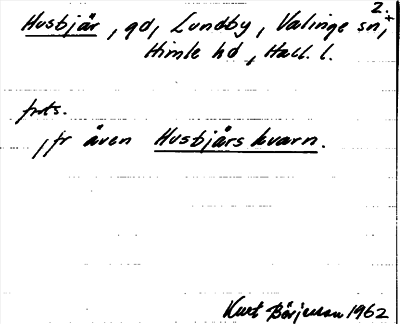 2.
Husbjär, gd, Lundby, Valinge sn,
Himle hd, Hall. l.
frts.
jfr även Husbjärs kvarn.
Kurt Börjesson 1962